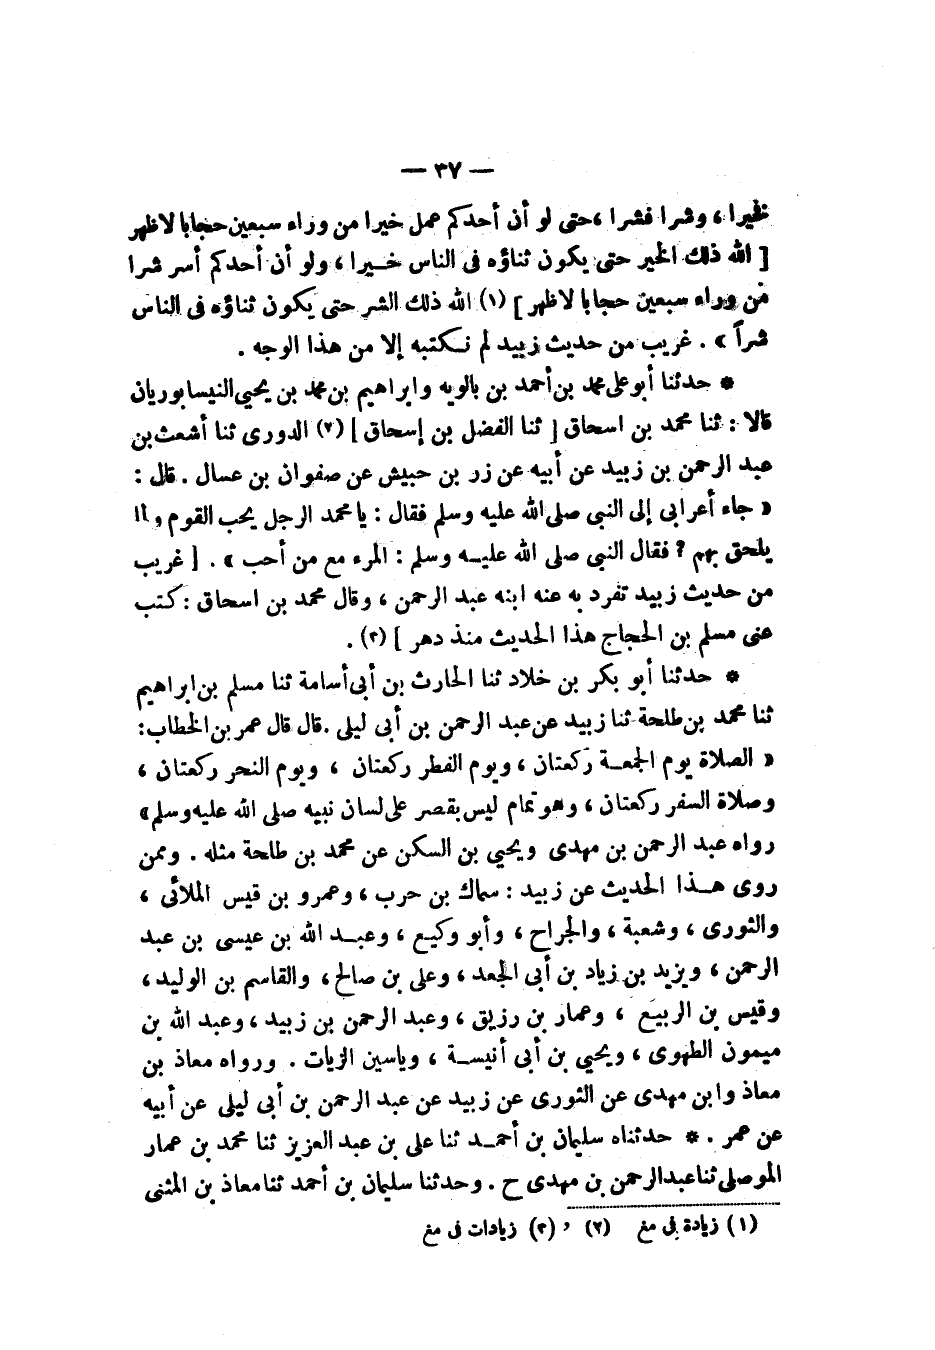 — ٣٧ —
فخيرا ، وشرا فشرا ،حتى لو أن أحدكم عمل خيرا من وراء سبعين حجابا لاظهر
[ الله ذلك الخير حتى يكون ثناؤه فى الناس خـيرا ، ولو أن أحدكم أسر شرا
من وراء سبعين حجابا لاظهر ] (١) الله ذلك الشر حتى يكون ثناؤه فى الناس
شراً » . غريب من حديث زبيد لم نـكتبه إلا من هذا الوجه .
* حدثنا أبو على محمد بن أحمد بن بالويه وابراهيم بن محمد بن يحيى النيسابوريان
قالا : ثنا محمد بن اسحاق [ ثنا الفضل بن إسحاق ] (٢) الدورى ثنا أشعث بن
عبد الرحمن بن زبيد عن أبيه عن زر بن حبيش عن صفوان بن عسال . قال :
« جاء أعرابى إلى النبى صلى الله عليه وسلم فقال : يا محمد الرجل يحب القوم ولما
يلحق بهم ؟ فقال النبى صلى الله عليـه وسلم : المرء مع من أحب » . [ غريب
من حديث زبيد تفرد به عنه ابنه عبد الرحمن ، وقال محمد بن اسحاق : كتب
عنى مسلم بن الحجاج هذا الحديث منذ دهر ] (٣) .
* حدثنا أبو بكر بن خلاد ثنا الحارث بن أبى أسامة ثنا مسلم بن ابراهيم
ثنا محمد بن طلحة ثنا زبيد عن عبد الرحمن بن أبى ليلى . قال قال عمر بن الخطاب :
« الصلاة يوم الجمعـة ركعتان ، ويوم الفطر ركعتان ، ويوم النحر ركعتان ،
وصلاة السفر ركعتان ، وهو تمام ليس بقصر على لسان نبيه صلى الله عليه وسلم »
رواه عبد الرحمن بن مهدى ويحيى بن السكن عن محمد بن طلحة مثله . وممن
روى هـذا الحديث عن زبيد : سماك بن حرب ، وعمرو بن قيس الملائى ،
والثورى ، وشعبة ، والجراح ، وأبو وكيـع ، وعبـد الله بن عيسى بن عبد
الرحمن ، ويزيد بن زياد بن أبى الجعد ، وعلى بن صالح ، والقاسم بن الوليد ،
وقيس بن الربيع ، وعمار بن رزيق ، وعبد الرحمن بن زبيد ، وعبد الله بن
ميمون الطهوى ، ويحيى بن أبى أنيسـة ، وياسين الزيات . ورواه معاذ بن
معاذ وابن مهدى عن الثورى عن زبيد عن عبد الرحمن بن أبى ليلى عن أبيه
عن عمر . * حدثناه سليمان بن أحمـد ثنا على بن عبد العزيز ثنا محمد بن عمار
الموصلى ثنا عبد الرحمن بن مهدى ح . وحدثنا سليمان بن أحمد ثنا معاذ بن المثنى
(١) زيادة فى مغ (٢) ، (٣) زيادات فى مغ